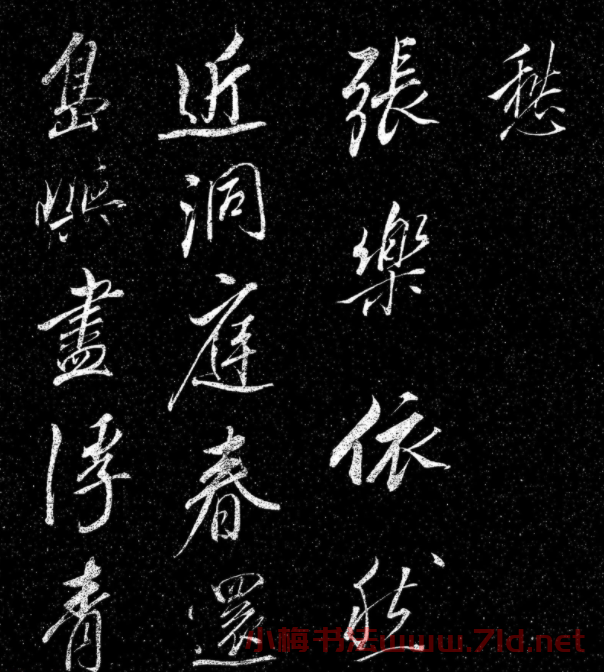 愁
張樂依然
近洞庭春還
島嶼盡浮青
小梅书法www.7ld.net